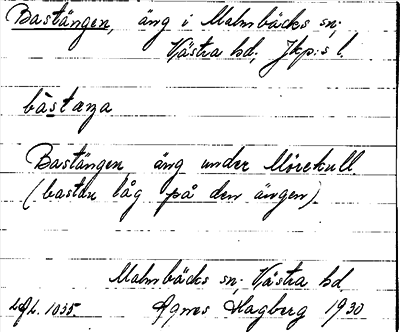 Bastängen, äng i Malmbäcks sn;
Västra hd, Jkp:s l.
bastæŋa
Bastängen, äng under Mörekull
(bastun låg på den ängen).
Malmbäcks sn; Västra hd
1035 Agnes Hagberg 1930